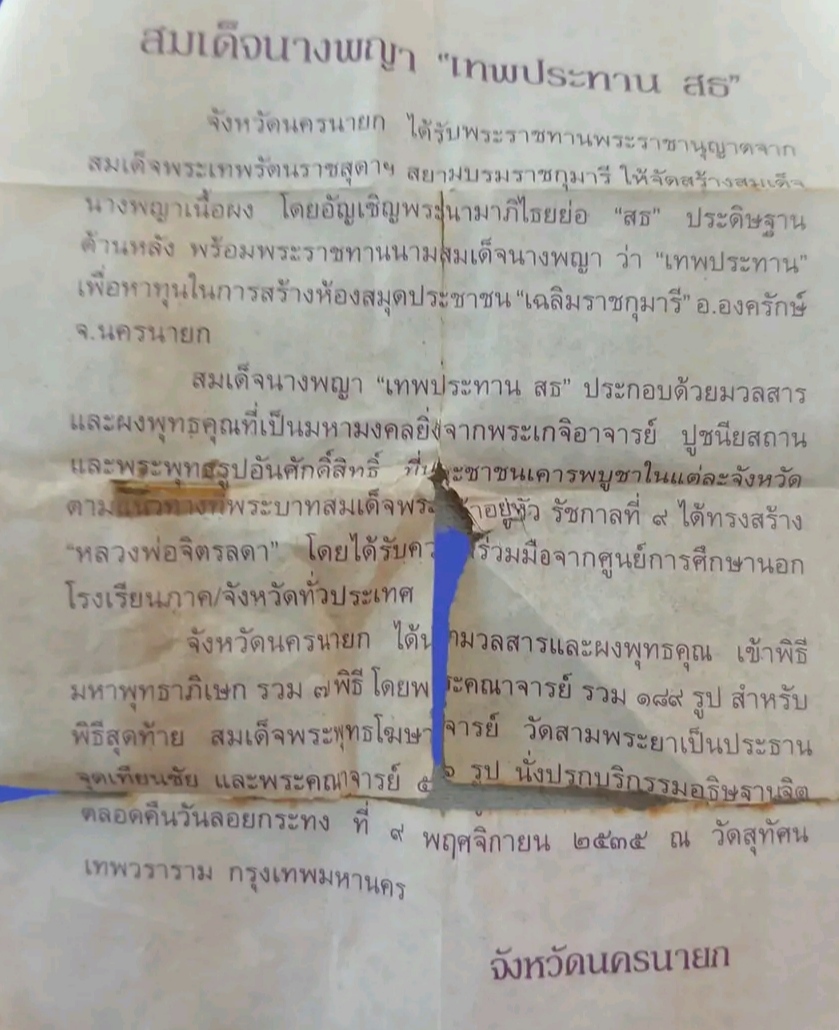 สมเด็จนางพญา "เทพประทาน สธ"
จังหวัดนครนายก ได้รับพระราชทานพระราชานุญาตจาก
สมเด็จพระเทพรัตนราชสุดาฯ สยามบรมราชกุมารี ให้จัดสร้างสมเด็จ
นางพญาเนื้อผง โดยอัญเชิญพระนามาภิไธยย่อ "สธ" ประดิษฐาน
ด้านหลัง พร้อมพระราชทานนามสมเด็จนางพญา ว่า "เทพประทาน"
เพื่อหาทุนในการสร้างห้องสมุดประชาชน "เฉลิมราชกุมารี" อ.องครักษ์
จ.นครนายก
สมเด็จนางพญา "เทพประทาน สธ" ประกอบด้วยมวลสาร
และผงพุทธคุณที่เป็นมหามงคลยิ่งจากพระเกจิอาจารย์ ปูชนียสถาน
และพระพุทธรูปอันศักดิ์สิทธิ์ ะชาชนเคารพบูชาในแต่ละจังหวัด
ตามแนวทางที่พระบาทสมเด็จพระ าอยู่หัว รัชกาลที่ ๙ ได้ทรงสร้าง
"หลวงพ่อจิตรลดา" โดยได้รับคว ร่วมมือจากศูนย์การศึกษานอก
โรงเรียนภาค/จังหวัดทั่วประเทศ
จังหวัดนครนายก ได้น ามวลสารและผงพุทธคุณ เข้าพิธี
มหาพุทธาภิเษก รวม ๗ พิธี โดยพ ระคณาจารย์ รวม ๑๘๙ รูป สำหรับ
พิธีสุดท้าย สมเด็จพระพุทธโฆษา จารย์ วัดสามพระยาเป็นประธาน
จุดเทียนชัย และพระคณาจารย์ ๕๖ รูป นั่งปรกบริกรรมอธิษฐานจิต
ตลอดคืนวันลอยกระทง ที่ ๙ พฤศจิกายน ๒๕๓๕ ณ วัดสุทัศน
เทพวราราม กรุงเทพมหานคร
จังหวัดนครนายก